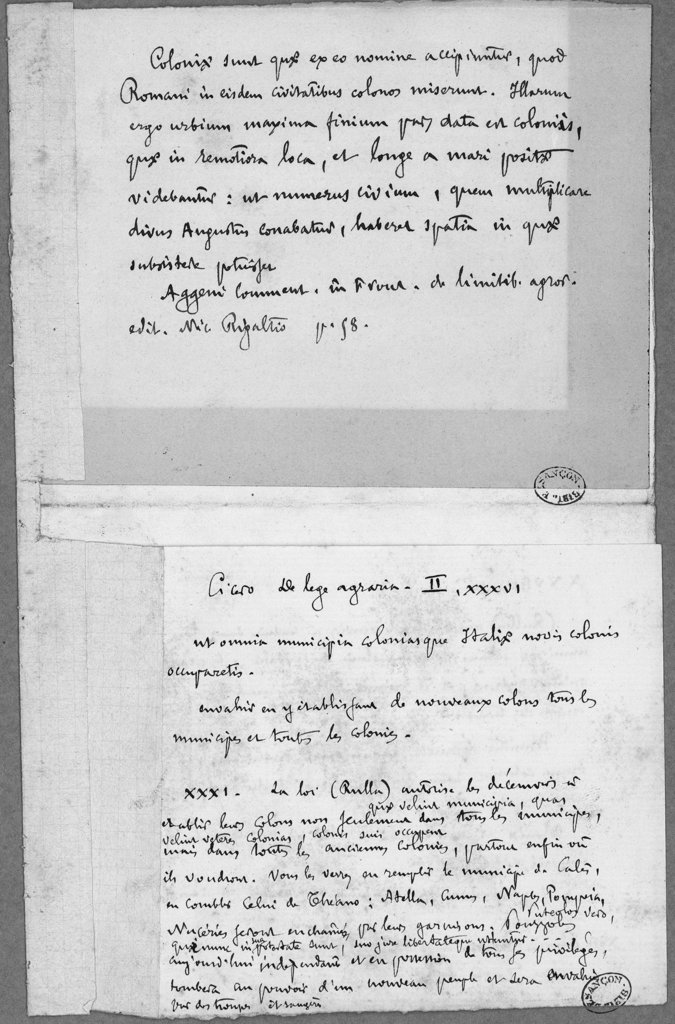 Coloniæ sunt quæ ex eo nomine accipiuntur, quod
Romani in eisdem civitatibus colonos miserunt. Illarum
ergo urbium maxima finium pars data est coloniis,
quæ in remotiora loca, et longe a mari positæ
videbantur : ut numerus civium, quem multiplicare
divus Augustus conabatur, haberet spatia in quæ
subsistere potuisset
Aggeni Comment. in Front. de limitib. agror.
edit. Nic Rigaltio p. 58.
SANÇON
Cicero De lege agraria. II, XXXVI
ut omnia municipia coloniasque Italiæ novis colonis
occuparetis.
envahir en y établissant de nouveaux colons tous les
municipes et toutes les colonies.
XXXI. La loi (Rulla) autorise les décemvirs à
quæ velint municipia, quas
établir leurs colons non seulement dans tous les municipes,
velint veteres colonias, colonis suis occupent
mais dans toutes les anciennes colonies, partout enfin où
ils voudront. Vous les verrez en remplir le municipe de Calès,
en combler celui de Théano ; Atella, Cumes, Naples, Pompeia,
Nucéries seront enchaînées par leurs garnisons. Pouzzoles
Puteolos vero,
quæ nunc in sua potestate sunt, suo jure libertateque utuntur
aujourd'hui indépendante et en possession de tous ses privilèges,
tombera au pouvoir d'un nouveau peuple et sera envahie
par des troupes
SANÇON